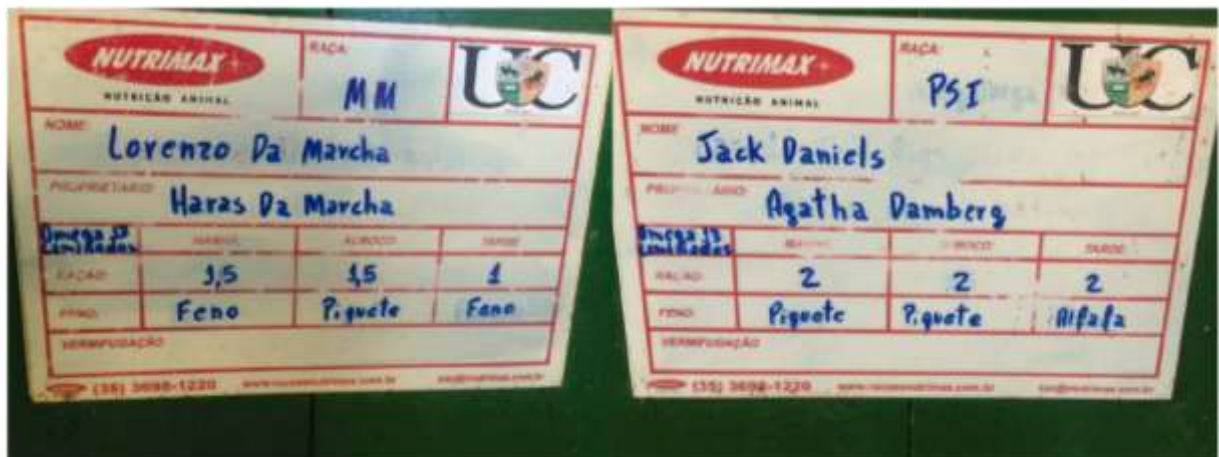 NUTRIMAX+
NUTRIÇÃO ANIMAL
RAÇA:
MM
UC
NOME:
Lorenzo Da Marcha
PROPRIETÁRIO:
Haras Da Marcha
Omega 12
Laminados
MANHÃ ALMOÇO TARDE
RAÇÃO: 1,5 1,5 1
FENO: Feno Piquete Feno
VERMIFUGAÇÃO
(35) 3698-1220
NUTRIMAX+
NUTRIÇÃO ANIMAL
RAÇA:
PSI
UC
NOME:
Jack Daniels
Agatha Damberg
Omega 12
Laminados
TARDE
RAÇÃO: 2 2 2
FENO: Piquete Piquete Alfafa
VERMIFUGAÇÃO
(35) 3698-1220